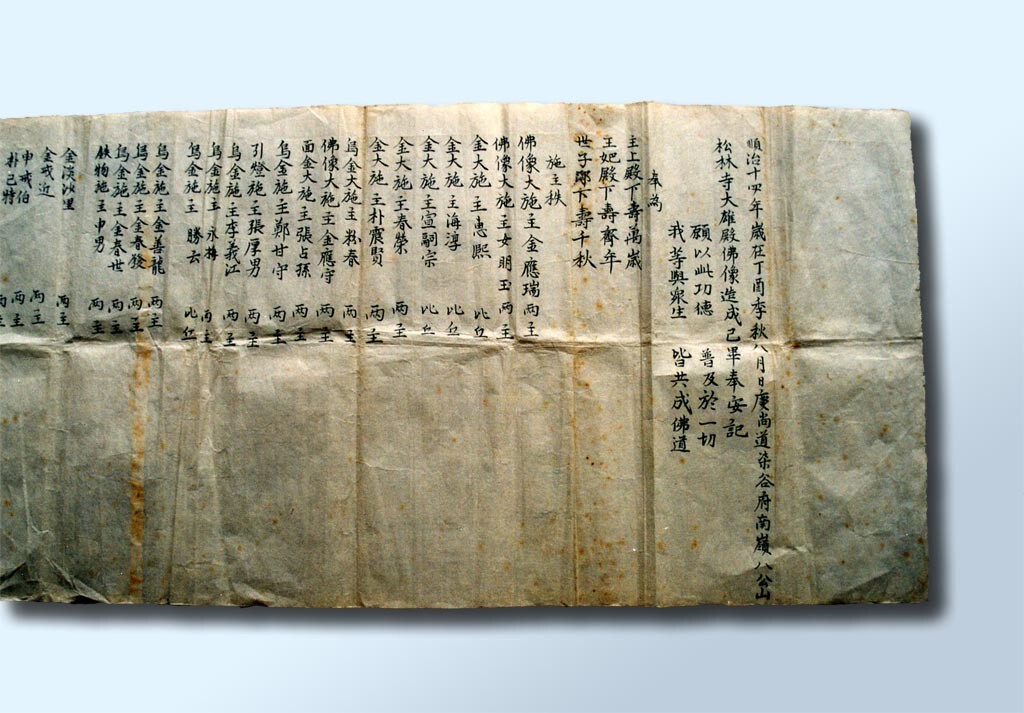 順治十四年歲在丁酉季秋八月日慶尚道柒谷府南嶺八公山
松林寺大雄殿佛像造成已畢奉安記
願以此功德 普及於一切
我等與衆生 皆共成佛道
奉為
主上殿下壽萬歲
王妃殿下壽齊年
世子邸下壽千秋
施主秩
佛像大施主金應瑞 兩主
佛像大施主女明玉 兩主
金大施主惠熙 比丘
金大施主海淳 比丘
金大施主宣嗣宗 比丘
金大施主春榮 兩主
金大施主朴震賢 兩主
烏金大施主 春 兩主
佛像大施主金應守 兩主
面金大施主張占孫 兩主
烏金施主鄭甘守 兩主
引燈施主張厚男 兩主
烏金施主李義江 兩主
烏金施主永梅 兩主
烏金施主勝云 比丘
烏金施主金善龍 兩主
烏金施主金春發 兩主
烏金施主金春世 兩主
鉄物施主申男 兩主
金漢沙里 兩主
金戒近 兩主
申戒伯 兩主
朴已特 兩主